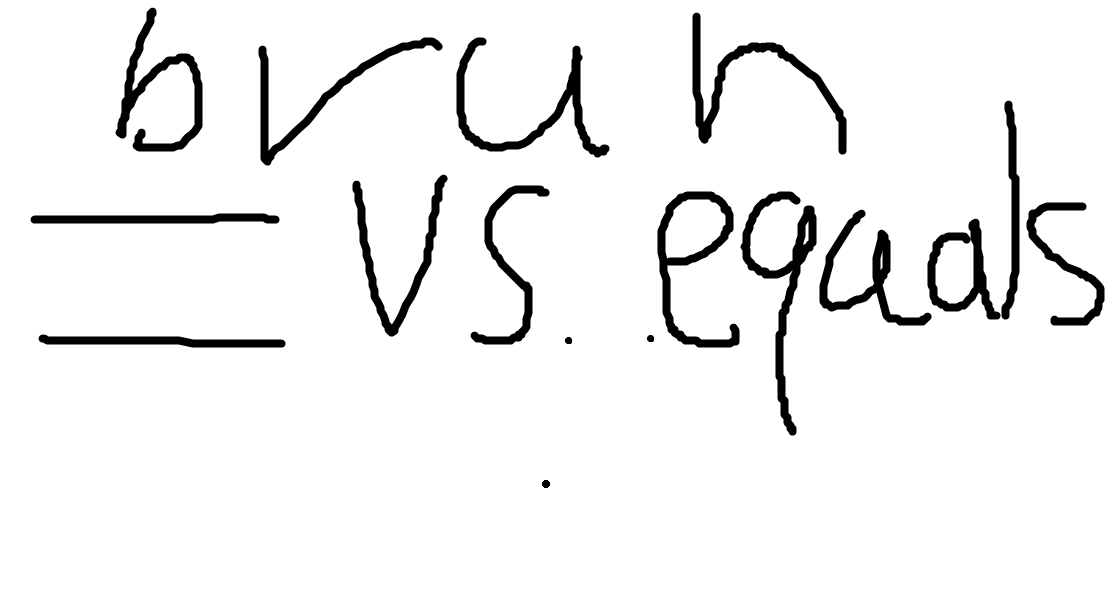 bruh
= vs. .equals